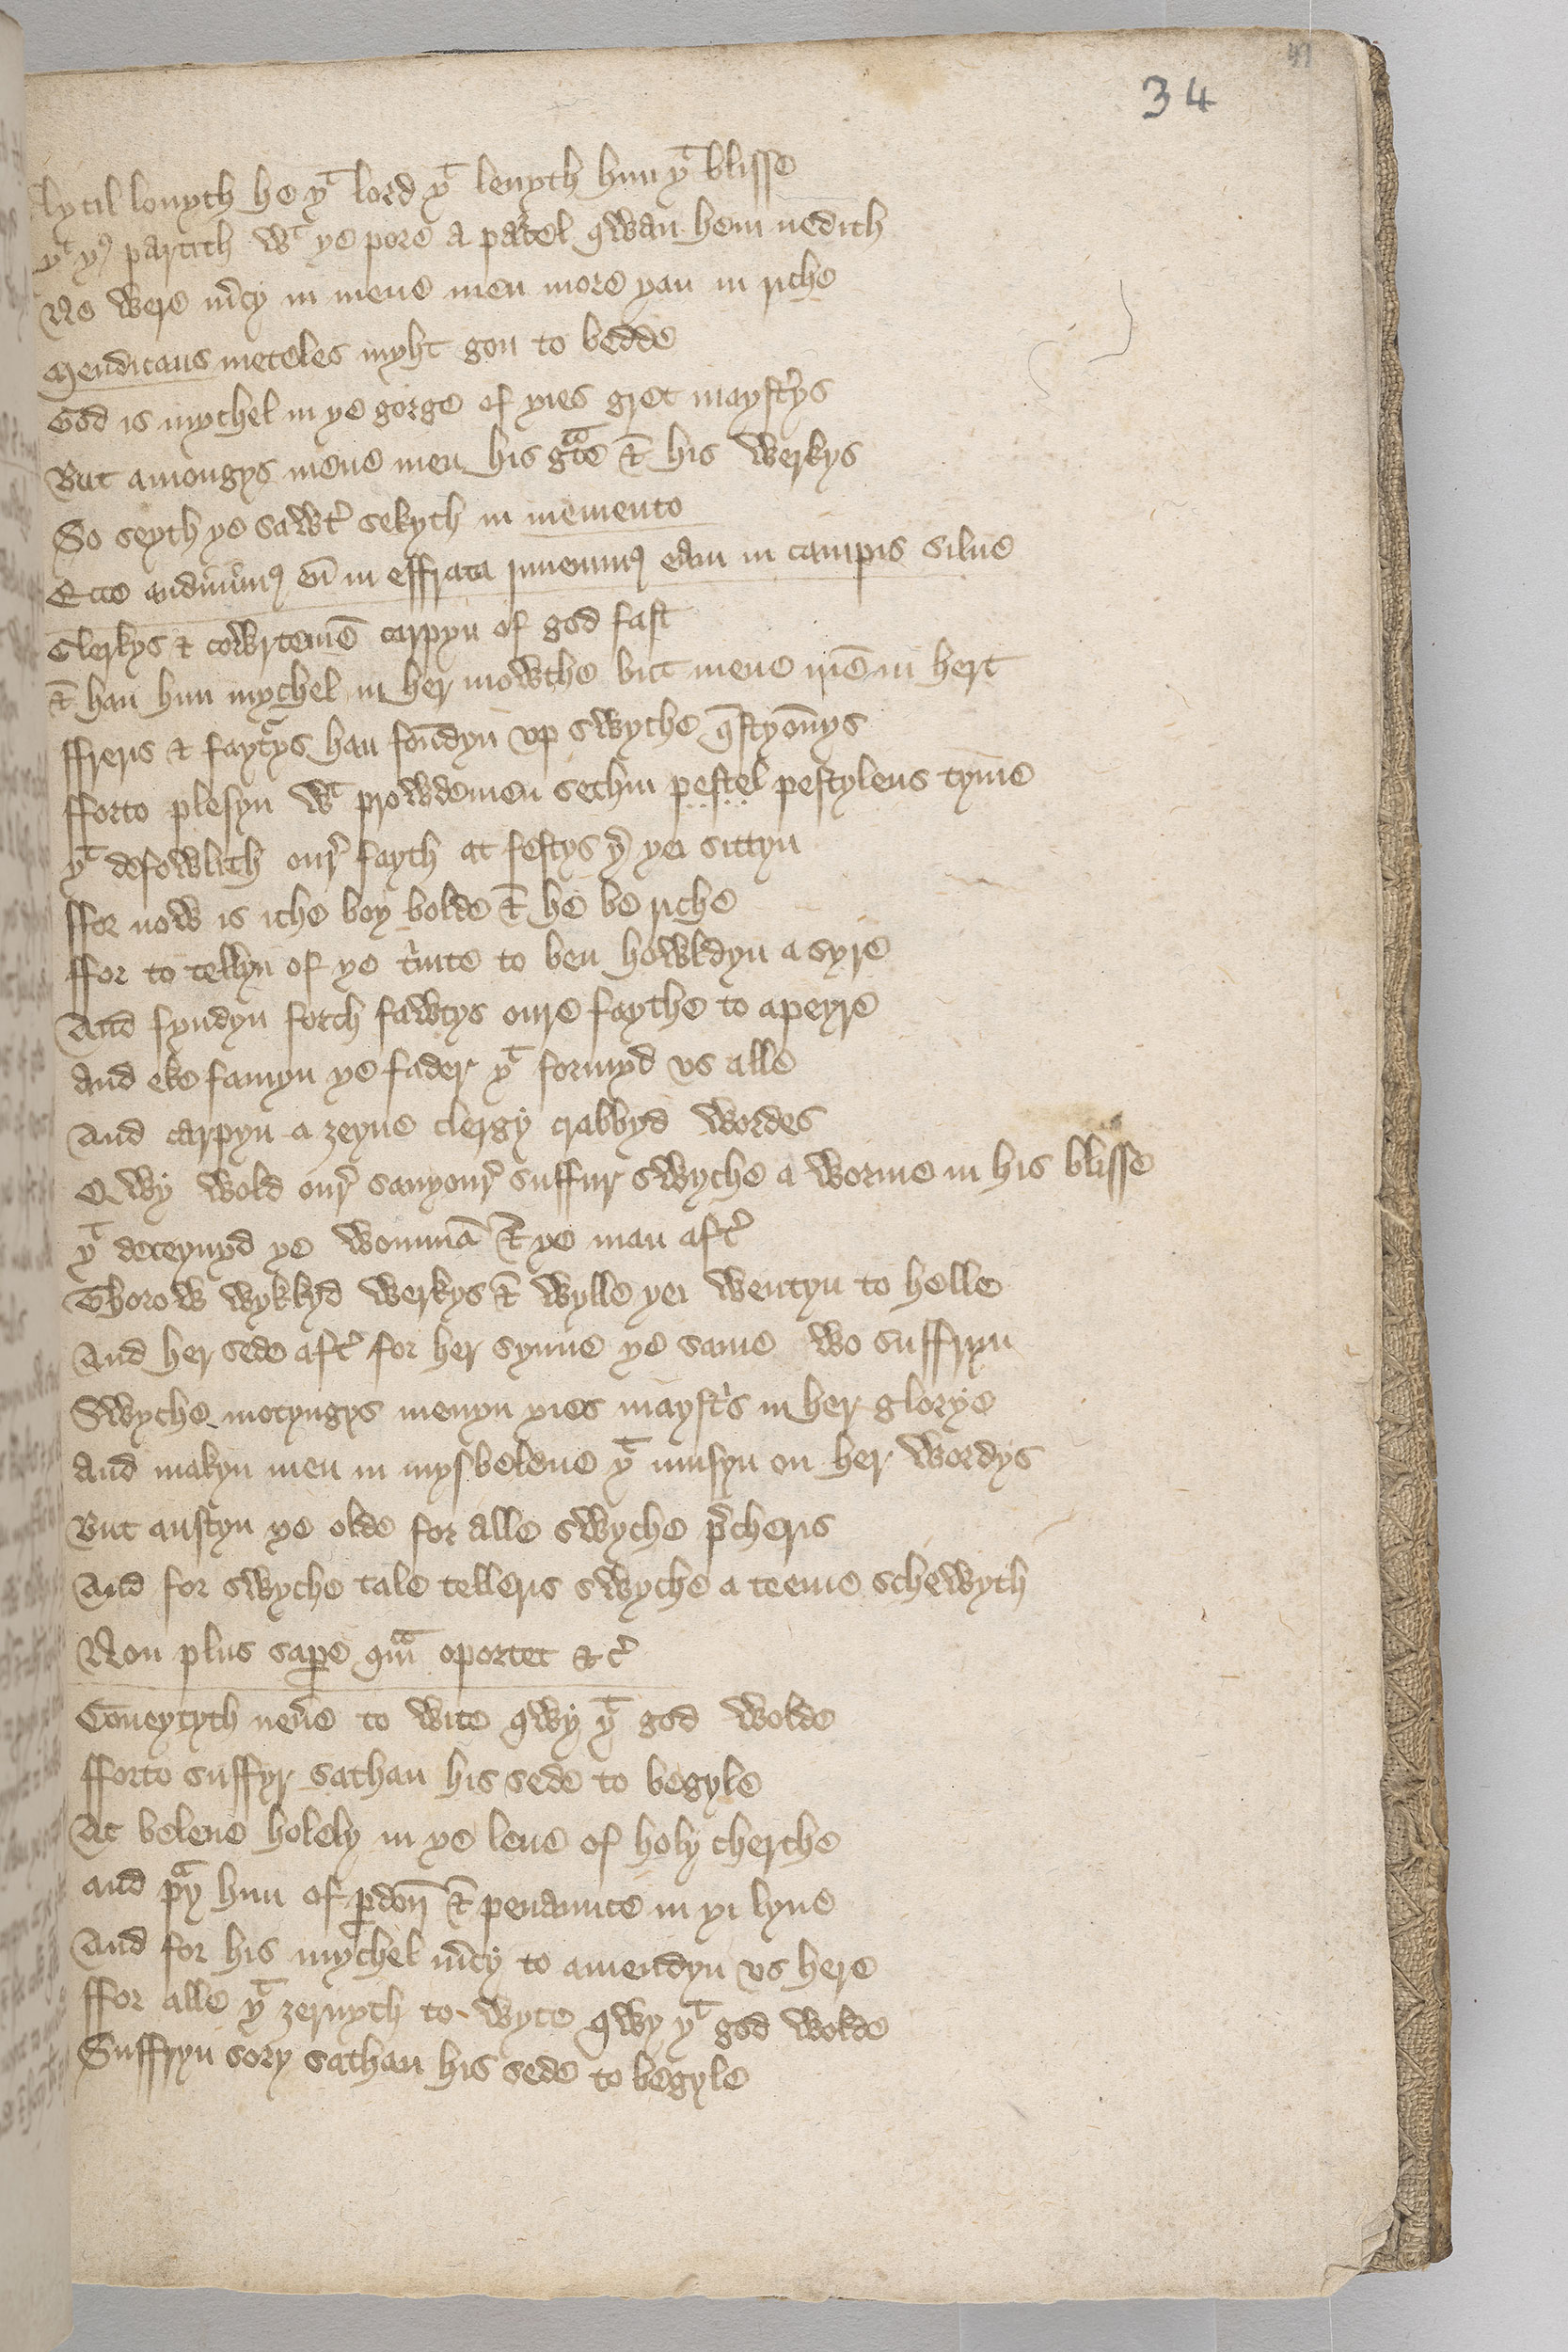 34
lytil louyth he yͭ lord yͭ lenyth hym yͭ blisse
yͭ yus partith wͭ ye pore a parcel qwan hem nedith
Ne were m̉cy in mene men more yan in riche
Mendicaus meteles myht gon to bedde
God is mychel in ye gorge of yies gret mayst̉ys
But amongys mene men his gᵃce & his werkys
So seyth ye sawt̉ sekyth in memento
Ecce audiuimꝰ eā in effrata inuenimꝰ eam in campis silue
Clerkys & cowrtemē carpyn of god fast
& han hym mychel in her mowthe but mene mē in hert
ffreris & faytᵃys han fōndyn vp swyche q̄styōnys
fforto plesyn wͭ prowdemen sethin pestel pestylens tyme
yͭ defowlith our̉ fayth at festys yͤ yei sittyn
ffor now is iche boy bolde & he be riche
ffor to tellyn of ye t̉inite to ben howldyn a syre
And fyndyn forth fawtys oure faythe to apeyre
And eke famyn ye fader yͭ formyd vs alle
And carpyn a zeyne clergy crabbyd wordes
Qwy wold our̉ sauyour̉ suffur swyche a worme in his blisse
yͭ deceyuyd ye wommā & ye man aft̉
Thorow wykkyd werkys & wylle yei wentyn to helle
And her sede aft̉ for her synne ye same wo suffryn
Swyche motyngys menyn yies mayst̉s in her glorye
And makyn men in mysbeleue yͭ musyn on her wordys
But austyn ye olde for alle swyche p̉cheris
And for swyche tale telleris swyche a teeme schewyth
Non plus sap̲e qᵃm oportet & c̉
Coueytyth neủe to wite qwy yͭ god wolde
fforto suffyr sathan his sede to begyle
At beleue holely in ye leue of holy cherche
and pᵃy hym of p̲don̄ & penaunce in yi lyue
And for his mychel m̉cy to amendyn vs here
ffor alle yͭ zernyth to wyte qwy yͭ god wolde
Suffryn sory sathan his sede to begyle